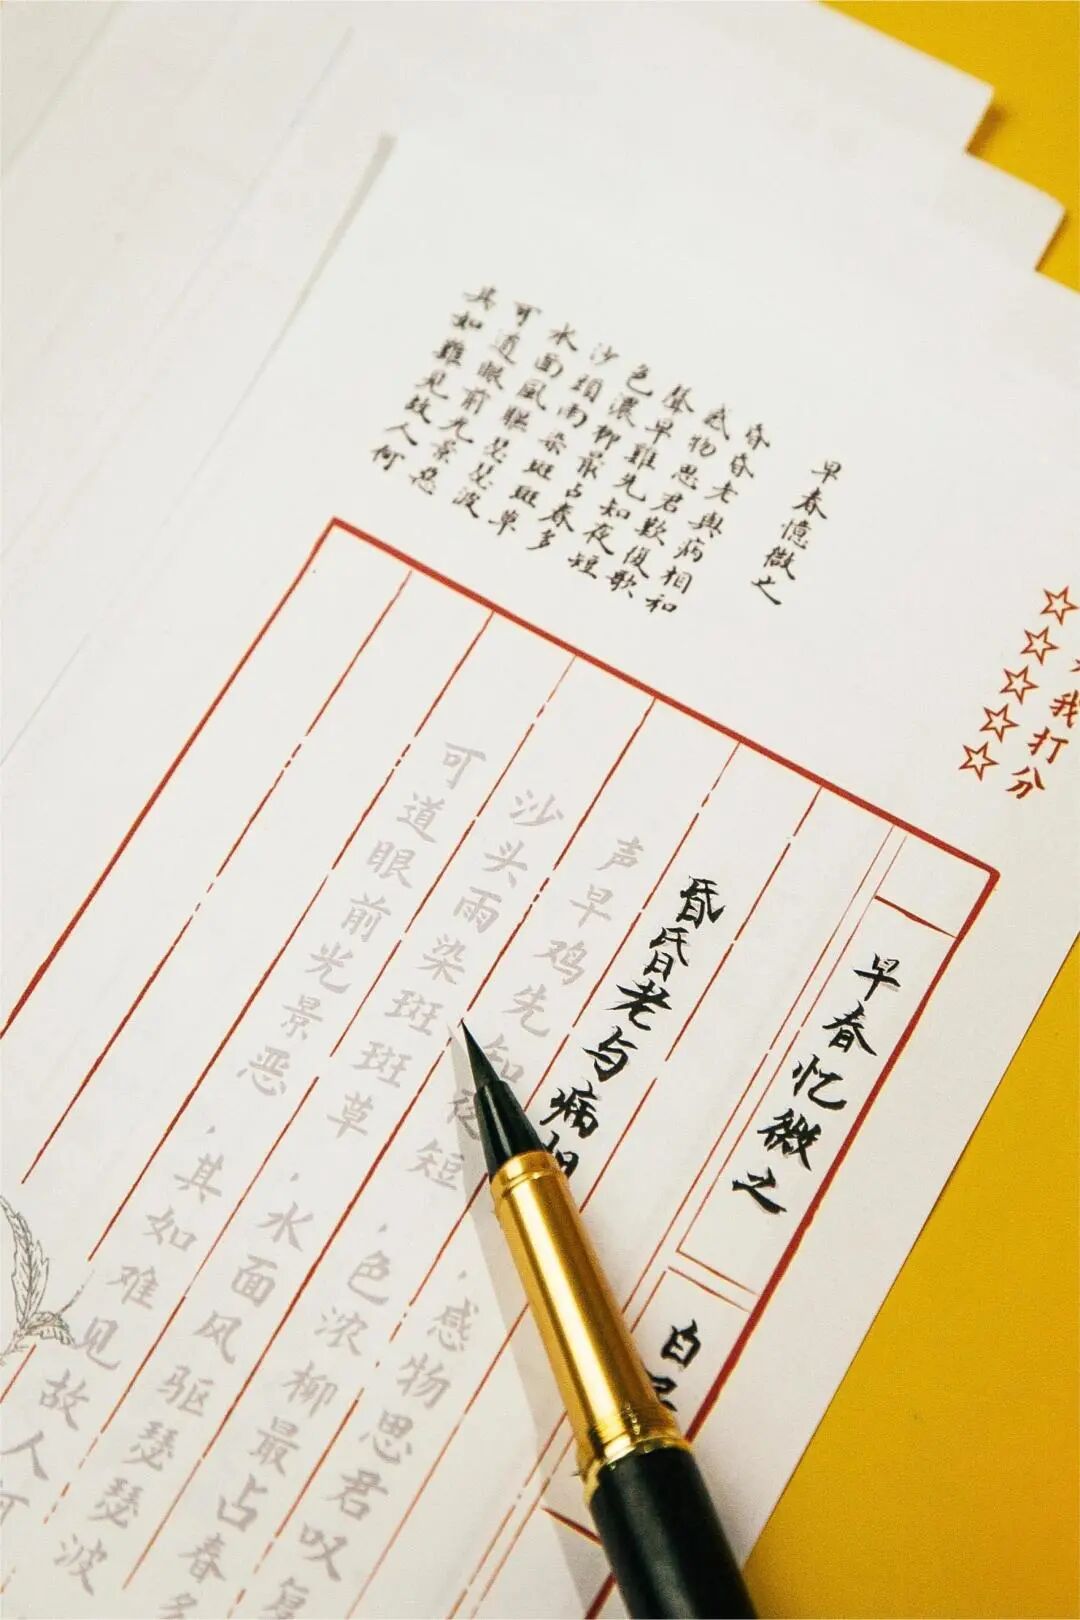 早春憶微之
昏昏老與病相和
感物思君歎復歌
聲早雞先知夜短
色濃柳最占春多
沙頭雨染斑斑草
水面風驅瑟瑟波
可道眼前光景惡
其如難見故人何
我打分
☆☆☆☆☆
早春忆微之
白
昏昏老与病相
，感物思君叹复
声早鸡先知夜短，色浓柳最占春多
沙头雨染斑斑草，水面风驱瑟瑟波
可道眼前光景恶，其如难见故人何